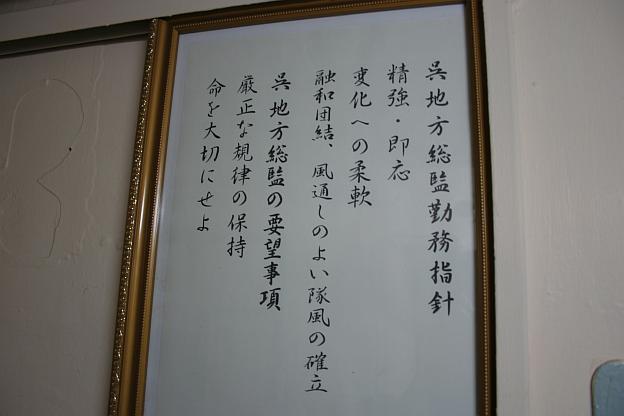 呉地方総監勤務指針
精強・即応
変化への柔軟
融和団結、風通しのよい隊風の確立
呉地方総監の要望事項
厳正な規律の保持
命を大切にせよ